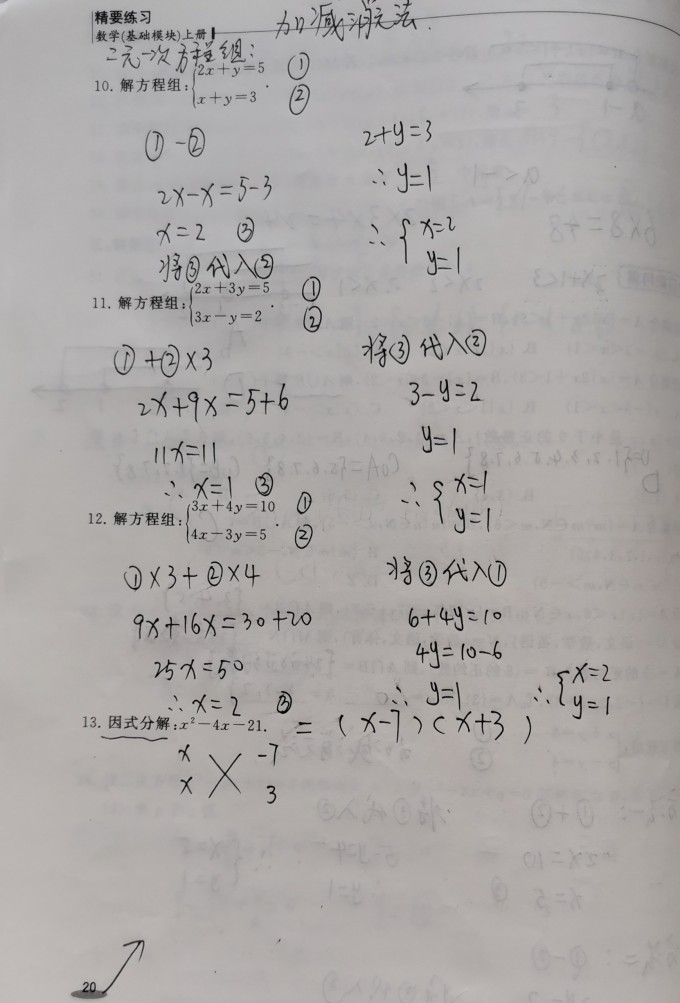 精要练习
数学(基础模块)上册
加减消元法.
二元一次方程组:
10. 解方程组:{2x+y=5 ①
x+y=3. ②
①-②
2x-x=5-3
x=2 ③
将③代入②
2+y=3
∴y=1
∴{x=2
y=1
11. 解方程组:{2x+3y=5 ①
3x-y=2. ②
①+②×3
2x+9x=5+6
11x=11
∴x=1 ③
将③代入②
3-y=2
y=1
∴{x=1
y=1
12. 解方程组:{3x+4y=10 ①
4x-3y=5. ②
①×3+②×4
9x+16x=30+20
25x=50
∴x=2 ③
将③代入①
6+4y=10
4y=10-6
∴y=1 ∴{x=2
y=1
13. 因式分解:x²-4x-21. =(x-7)(x+3)
x -7
x 3
20